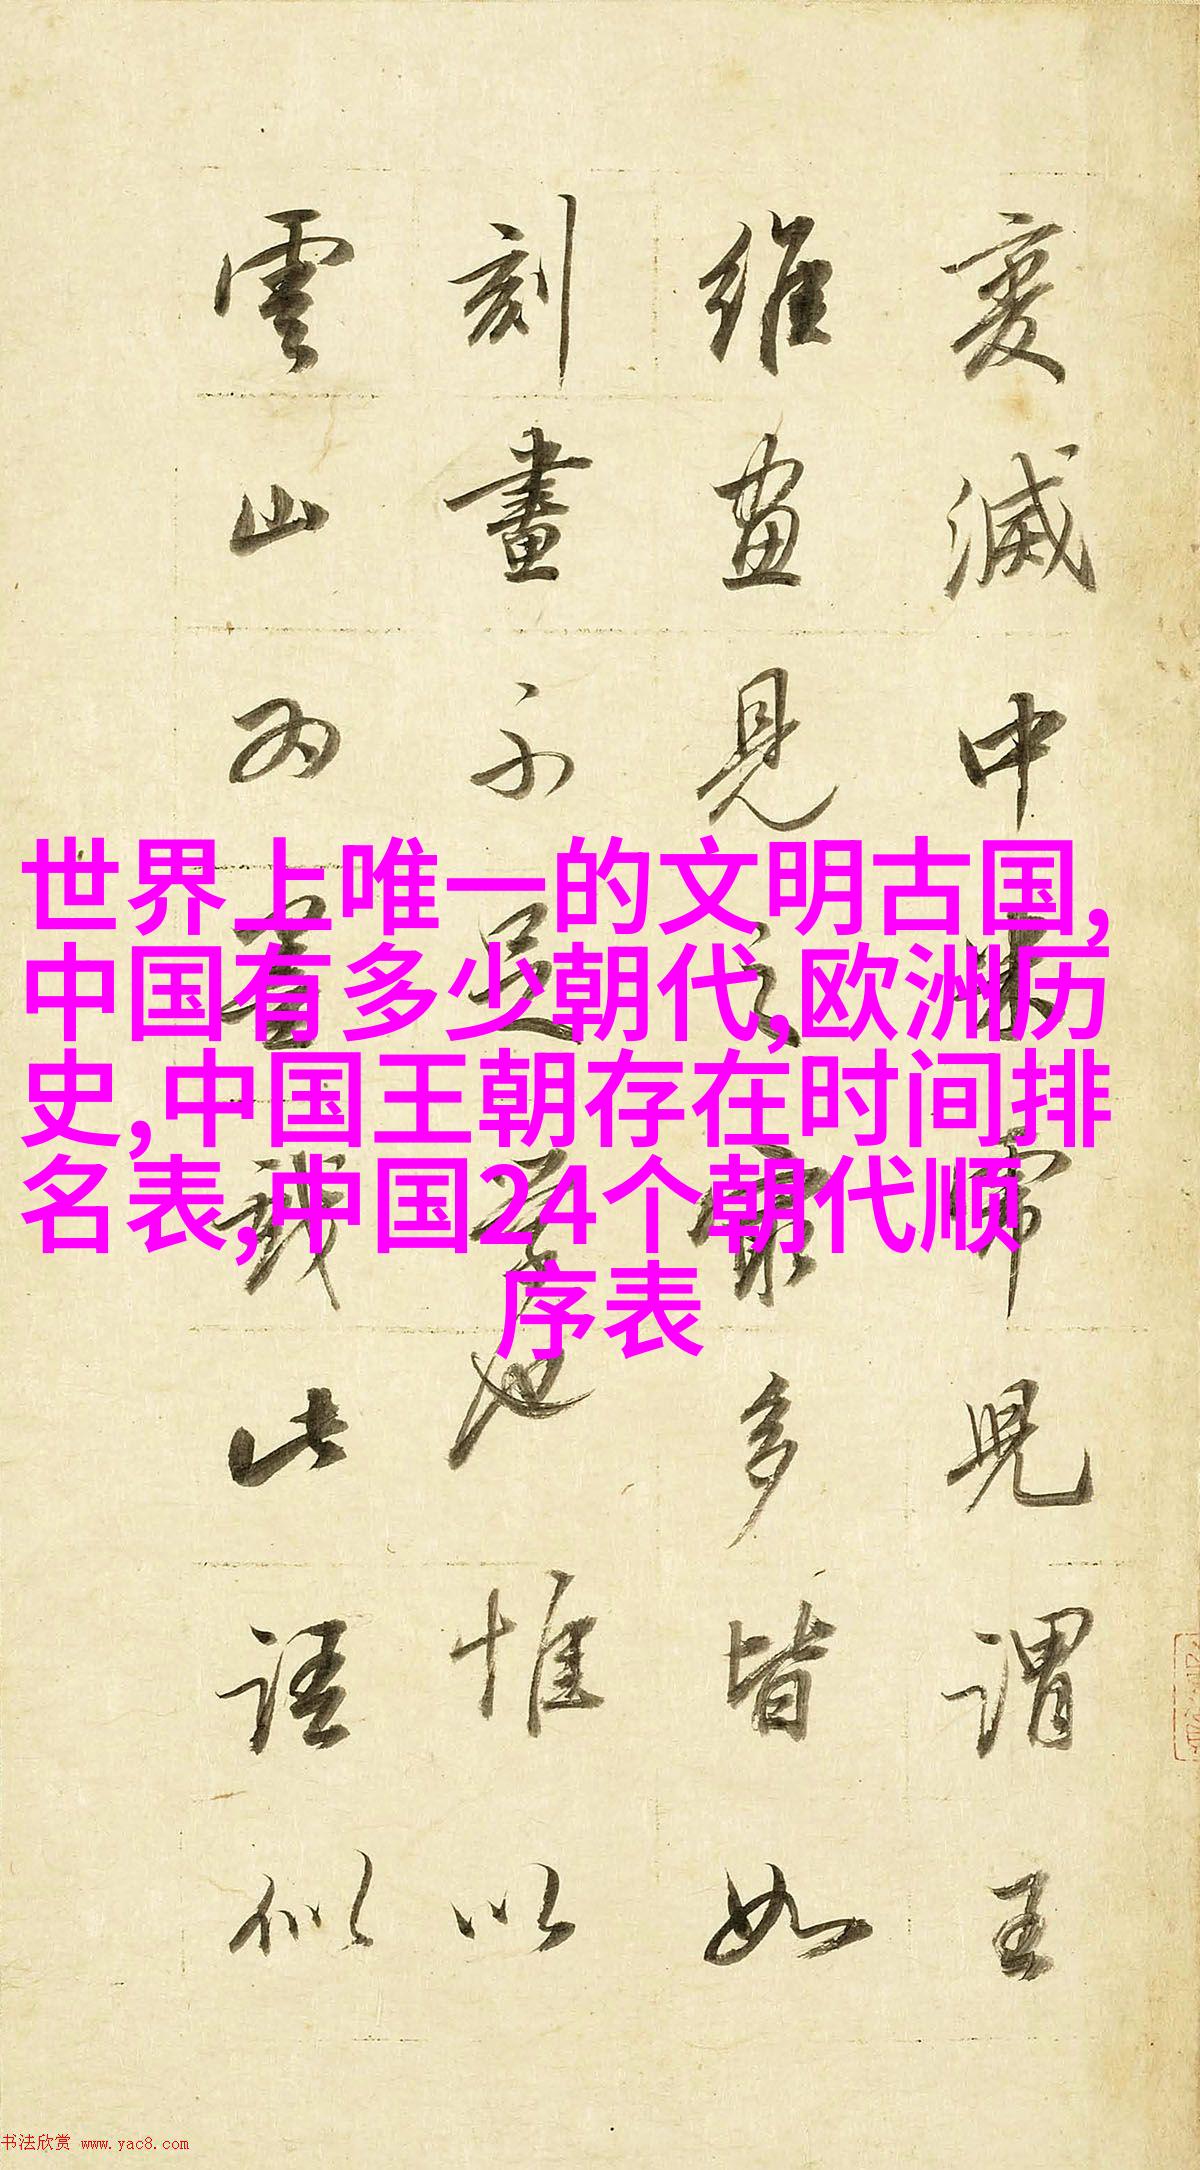 世界上唯一的文明古国,
中国有多少朝代,欧洲历
史,中国王朝存在时间排
名表,中国24个朝代顺
序表
變滅中常見謂王
維畫見之最多皆如
刻畫不足學也惟以
雲山為墨戲此語似
书法欣赏 www.yac8.com